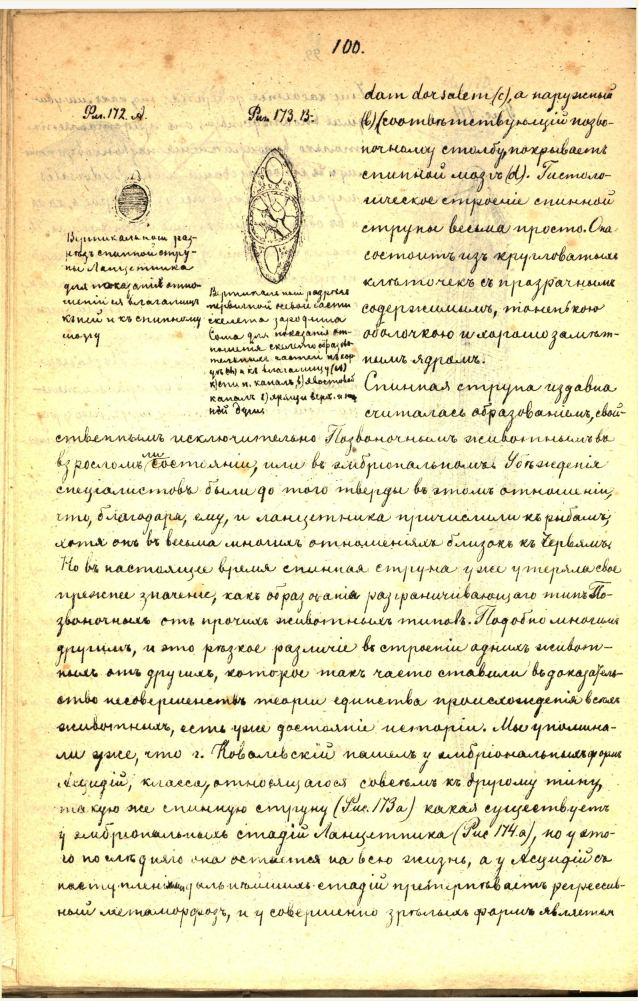 100.
Рис. 172. А.
Рис. 173. В.
Вертикальный раз-
рѣзъ спинной стру-
ны Ланцетника
для показанія отно-
шеній ея влагалищ
къ ней и къ спинному
мозгу
Вертикальный разрѣзъ
первичной осевой части
скелета зародыша
Сома для показанія от-
ношенія скелето образо-
вательныхъ частей
каналъ в) хвостовой
каналъ г) хрящи верх. и ниж
ней дуги
dam dorsalem (с), а наружный
(b) (соотвѣтствующій позво-
ночному столбу, покрываетъ
спинной мозгъ (d). Гистоло-
гическое строеніе спинной
струны весьма просто. Она
состоитъ изъ кругловатыхъ
клѣточекъ съ прозрачнымъ
содержимымъ, тоненькою
оболочкою и хорошо замѣт-
нымъ ядромъ.
Спинная струна издавна
считалась образованіемъ, свой-
ственнымъ исключительно Позвоночнымъ животнымъ во
взросломъ ли состояніи, или въ эмбріональномъ. Убѣжденія
спеціалистовъ были до того тверды въ этомъ отношеніи,
что, благодаря, ему, и ланцетника причислили къ рыбамъ,
хотя онъ въ весьма многихъ отношеніяхъ близокъ къ Червямъ.
Но въ настоящее время спинная струна уже утеряла свое
прежнее значеніе, какъ образованія разграничивающаго типъ По-
звоночныхъ отъ прочихъ животныхъ типовъ. Подобно многимъ
другимъ, и это рѣзкое различіе въ строеніи однихъ живот-
ныхъ отъ другихъ, которое такъ часто ставили въ доказатель-
ство несовершенствъ теоріи единства происхожденія всѣхъ
животныхъ, есть уже достояніе исторіи. Мы упомина-
ли уже, что г. Ковалевскій нашелъ у эмбріональныхъ формъ
Асцидій, класса, относящагося совсѣмъ къ другому типу,
такую же спинную струну (Рис. 173а) какая существуетъ
у эмбріональныхъ стадій Ланцетника (Рис 174а), но у это-
го послѣдняго она остается на всю жизнь, а у Асцидій съ
наступленіемъ дальнѣйшихъ стадій претерпѣваетъ регрессив-
ный метаморфозъ, и у совершенно зрѣлыхъ формъ является